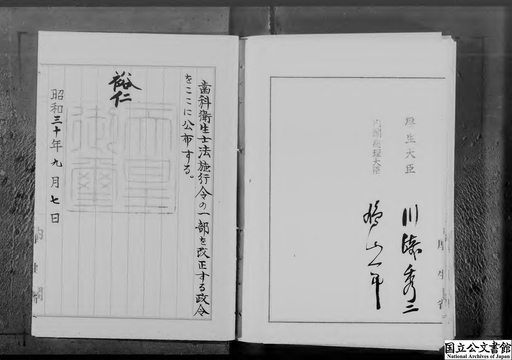 歯科衛生士法施行令の一部を改正する政令
をここに公布する。
裕仁
天皇
御璽
昭和三十年九月七日
厚生大臣
川崎秀二
内閣総理大臣
鳩山一郎
国立公文書館
National Archives of Japan